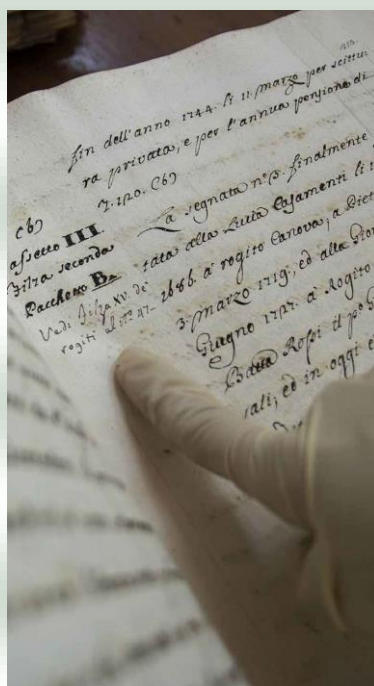 fin dell'anno 1744. li 11. marzo per scittu-
ra privata, e per l'annua penzione di
7.120. (b)
(b)
assetto III.
Filza seconda
Pacchetto B.
Vedi Filza XV. de'
rogiti al n.o 47.
La segnata n.o 3. finalmente
tata alla Livia Casamenti li
1686. a rogito Canova, a Piet
3. marzo 1719. ed alla Gio
Giugno 1727. a Rogito
Rossi il
ali; ed in oggi è